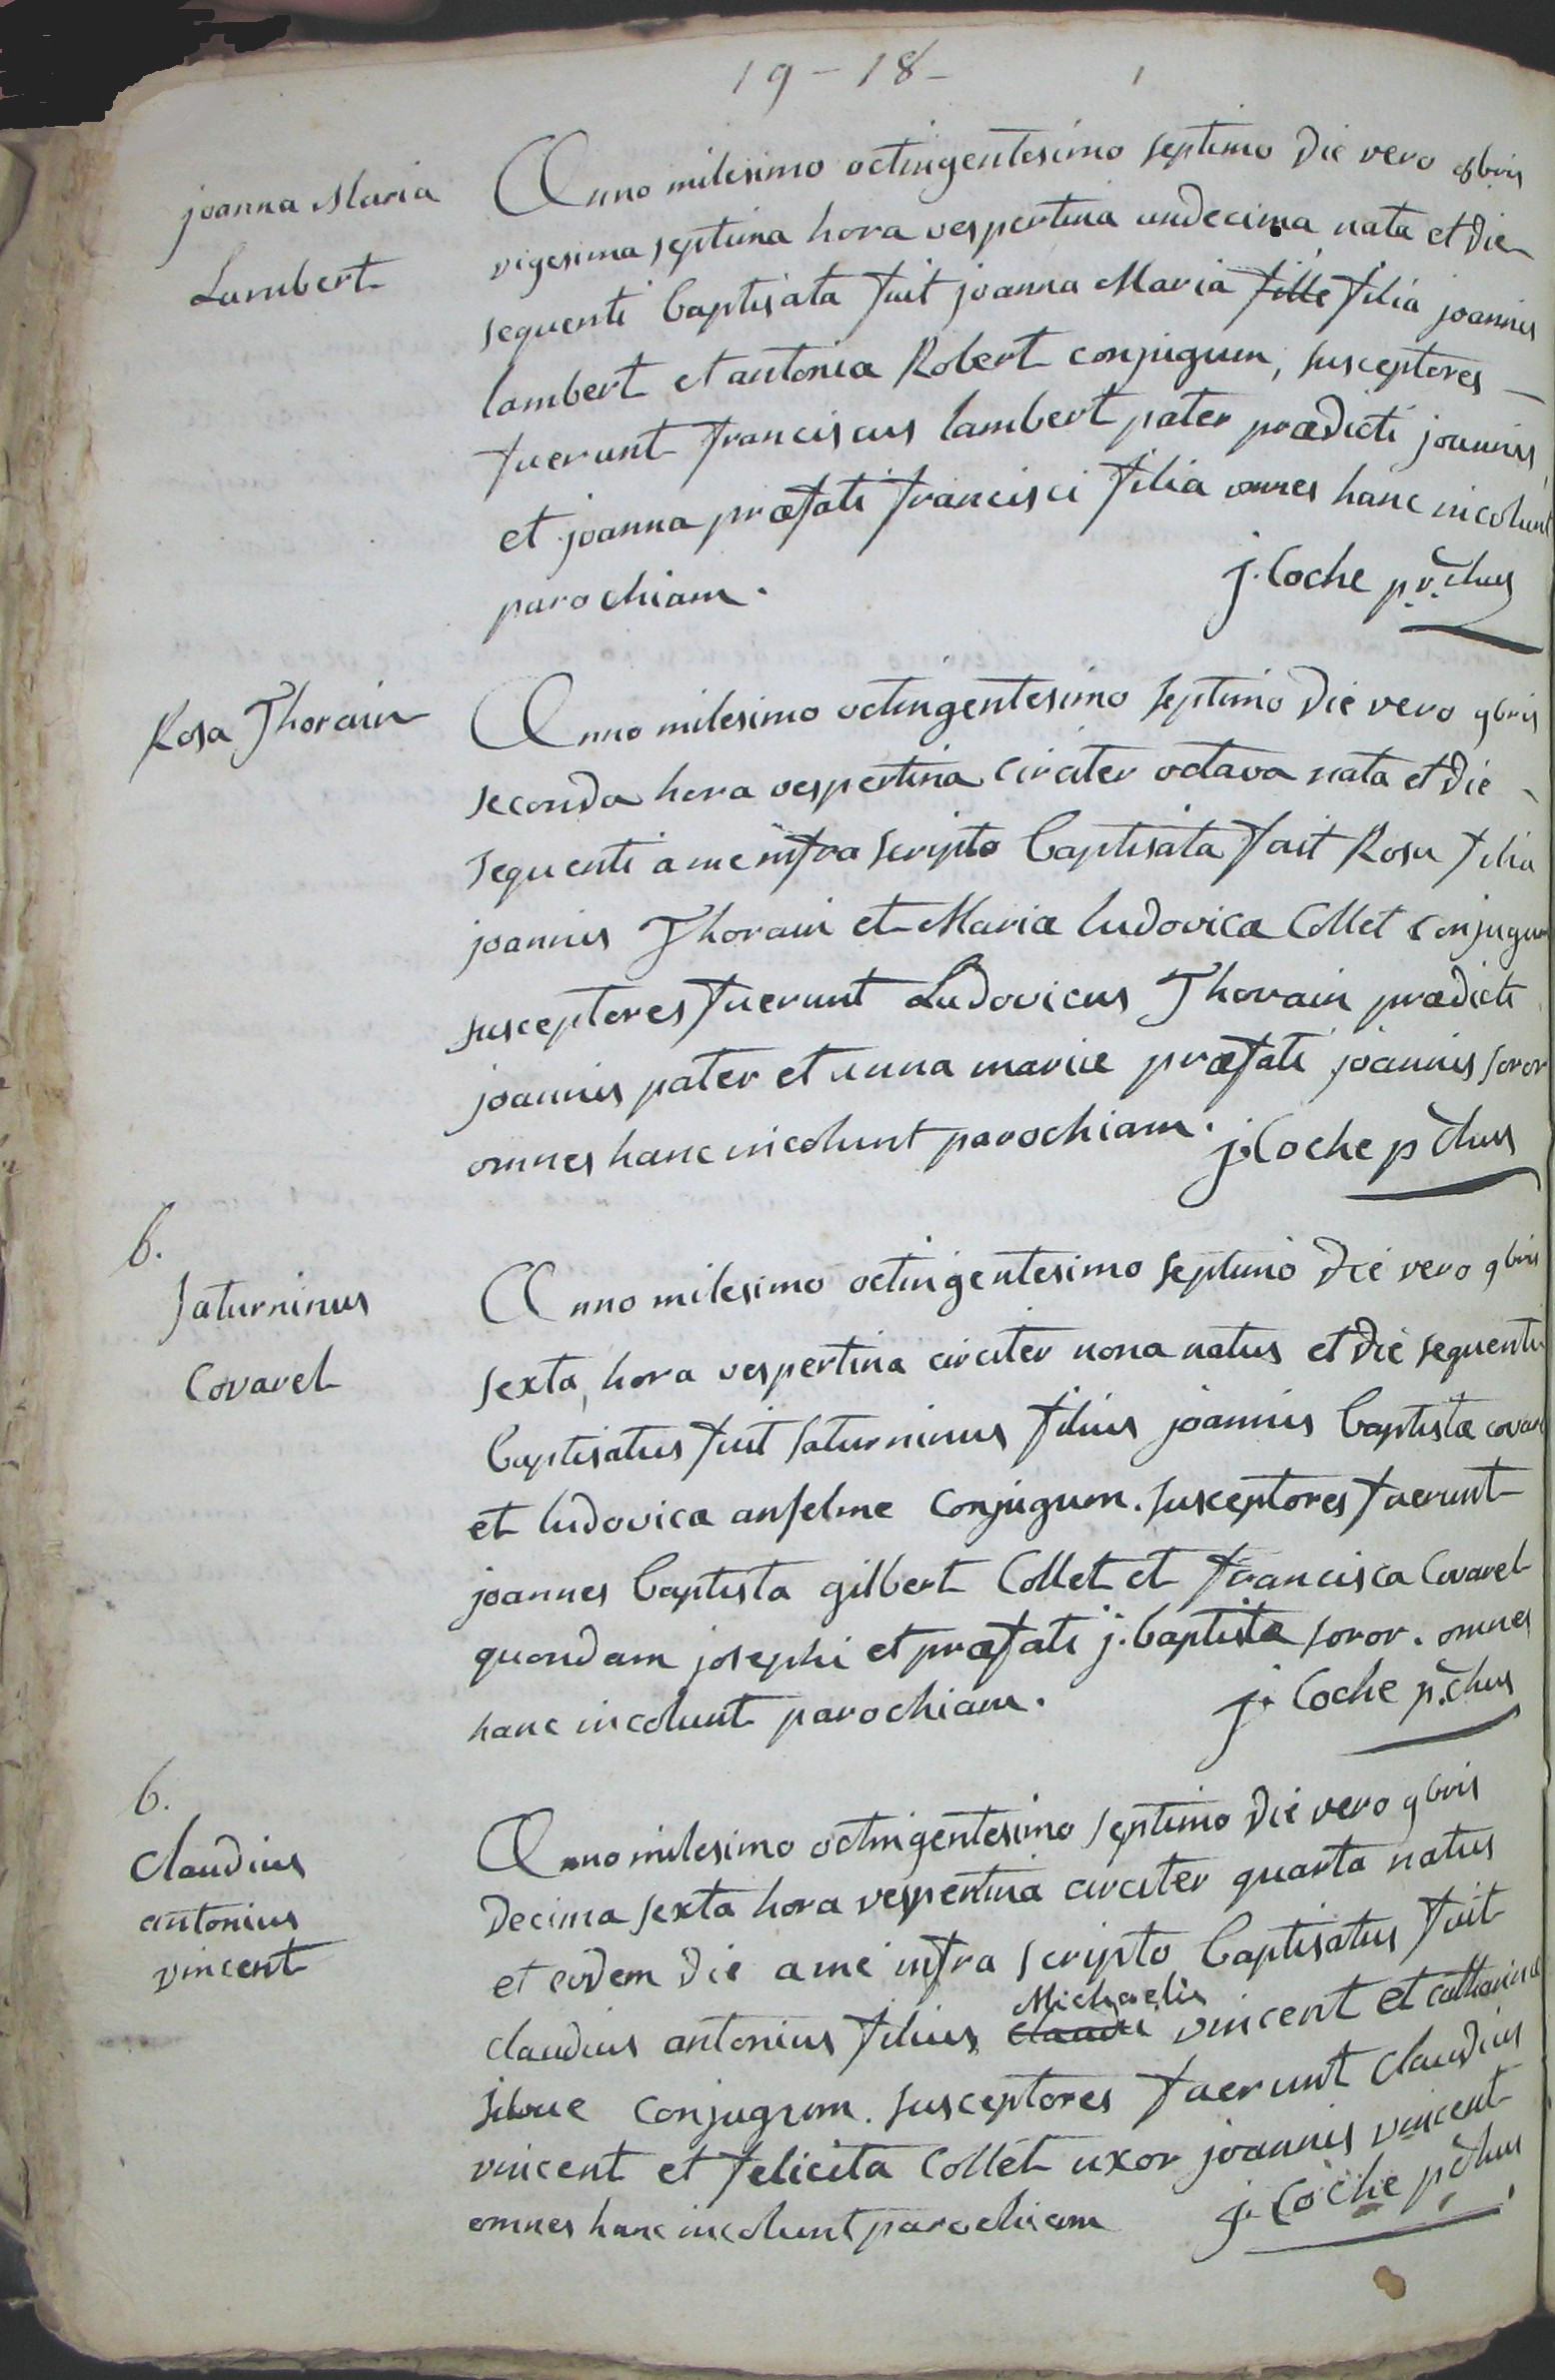 19-18-
joanna Maria
Lambert
Anno milesimo octingentesimo septimo die vero 8bris
vigesima septima hora vespertina undecima nata et die
sequenti baptisata fuit joanna Maria fille filia joannis
lambert et antoniæ Robert conjugum, susceptores
fuerunt franciscus lambert pater prædicti joannis
et joanna præfati francisci filia omnes hanc incolunt
parochiam.
j. Coche p.r.chus
Rosa Thorain
Anno milesimo octingentesimo septimo die vero 9bris
seconda hora vespertina circiter octava nata et die
sequenti a me infra scripto baptisata fuit Rosa filia
joannis Thorain et Mariæ ludovicæ Collet conjugum
susceptores fuerunt Ludovicus Thorain prædicti
joannis pater et anna mariæ præfati joannis soror
omnes hanc incolunt parochiam.
j. Coche pchus
6.
Saturninus
Covarel
Anno milesimo octingentesimo septimo die vero 9bris
sexta, hora vespertina circiter nona natus et die sequenti
baptisatus fuit saturninus filius joannis baptistæ covarel
et ludovicæ anselme conjugum. susceptores fuerunt
joannes baptista gilbert Collet et francisca Covarel
quondam josephi et præfati j. baptistæ soror. omnes
hanc incolunt parochiam.
j. Coche p.chus
6.
Claudius
antonius
vincent
Anno milesimo octingentesimo septimo die vero 9bris
decima sexta hora vespertina circiter quarta natus
et eodem die a me infra scripto baptisatus fuit
Michaelis
claudius antonius filius claudi vincent et catharinæ
conjugum. susceptores fuerunt claudius
vincent et felicita Collet uxor joannis vincent
omnes hanc incolunt parochiam
j. Coche pchus